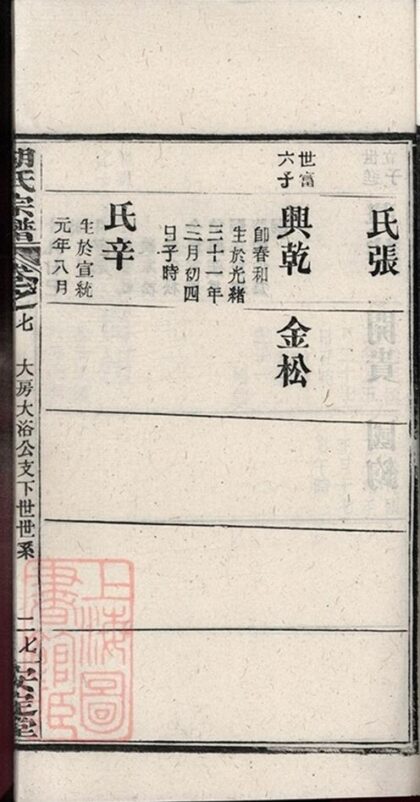 張氏
世富
六子
興乾
即春和
生於光緒
三十一年
三月初四
日子時
金松
辛氏
生於宣統
元年八月
胡氏宗譜
卷之七
大房大浴公支下世世系
二七
安定堂
上海圖
書館臧